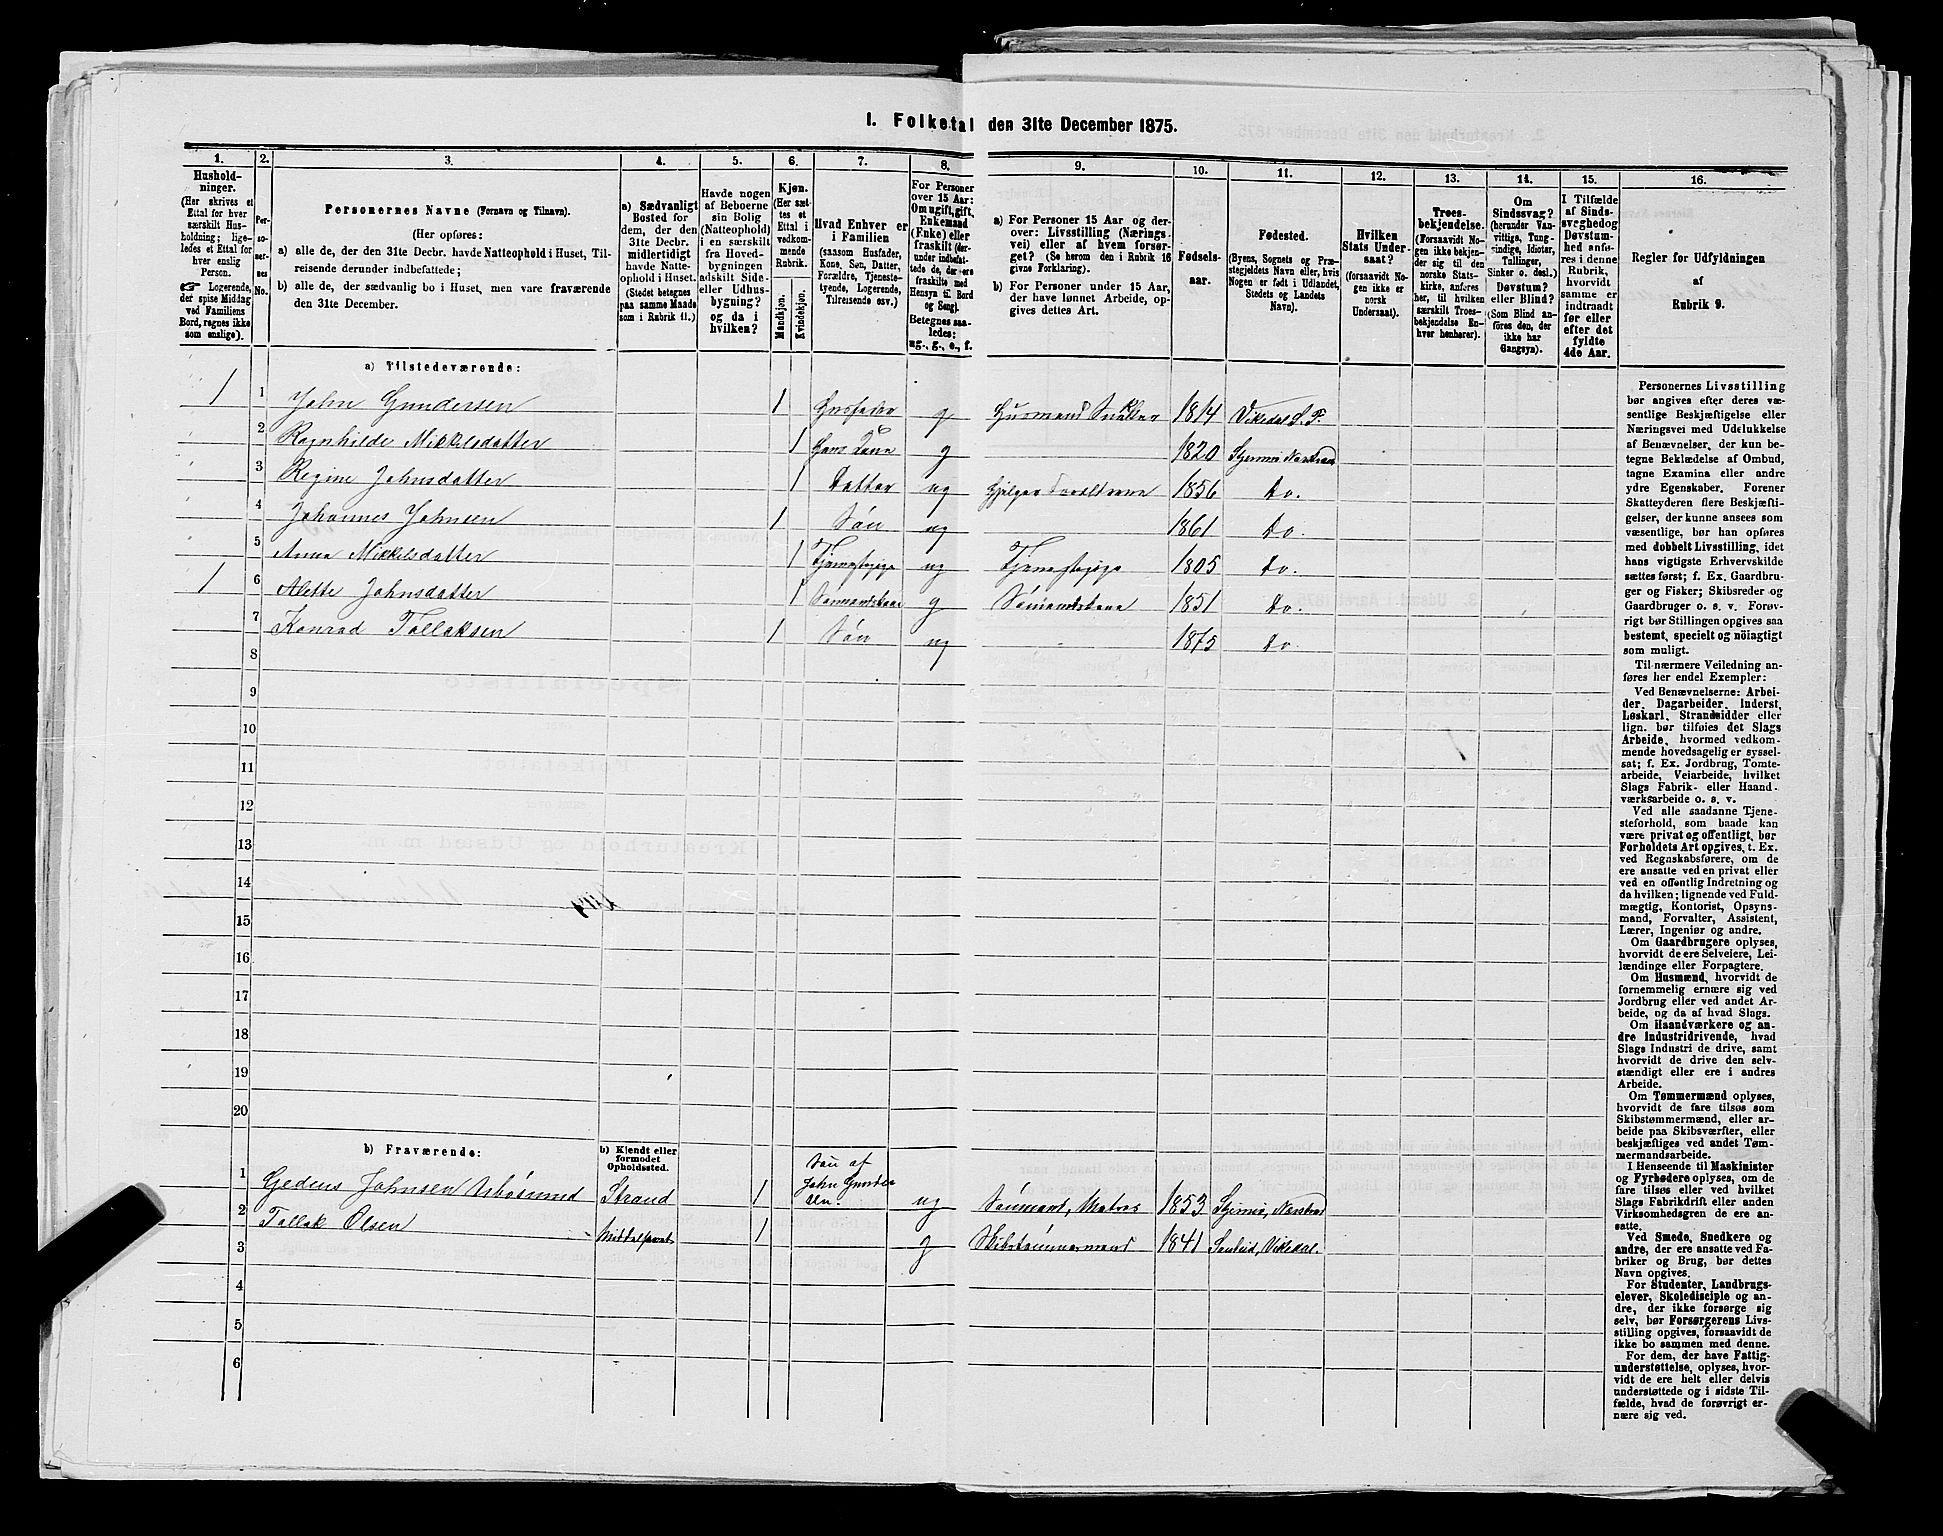 I. Folketal den 31te December 1875.
1. 2. 3. 4. 5. 6. 7. 8. 9. 10. 11. 12. 13. 14. 15. 16.
Hushold-
ninger.
(Her skrives et
Ettal for hver
særskilt Hus-
holdning; lige-
ledes et Ettal for
hver enslig
Person.
☞ Logerende,
der spise Middag
ved Familiens
Bord, regnes ikke
som enslige).
Per-
so-
ner-
nes
No.
Personernes Navne (Fornavn og Tilnavn).
(Her opføres:
a) alle de, der den 31te Decbr. havde Natteophold i Huset, Til-
reisende derunder indbefattede;
b) alle de, der sædvanlig bo i Huset, men vare fraværende
den 31te December.
a) Sædvanligt
Bosted for
dem, der den
31te Decbr.
midlertidigt
havde Natte-
ophold i Huset.
(Stedet betegnes
paa samme Maade
som i Rubrik 11.)
Havde nogen
af Beboerne
sin Bolig
(Natteophold)
i en særskilt
fra Hoved-
bygningen
adskilt Side-
eller Udhus-
bygning?
og da i
hvilken?
Kjøn.
(Her sæt-
tes et
Ettal i
vedkom-
mende
Rubrik.
Mandkjøn.
Kvindekjøn.
Hvad Enhver er
i Familien
(saasom Husfader,
Kone, Søn, Datter,
Forældre, Tjeneste-
tyende, Logerende,
Tilreisende osv.)
For Personer
over 15 Aar:
Om ugift, gift,
Enkemand
(Enke) eller
fraskilt (der-
under indbefat-
tede de, der ere
fraskilte med
Hensyn til Bord
og Seng).
Betegnes saa-
ledes:
ug., g., e., f.
a) For Personer 15 Aar og der-
over: Livsstilling (Nærings-
vei) eller af hvem forsør-
get? (Se herom den i Rubrik 16
givne Forklaring).
b) For Personer under 15 Aar,
der have lønnet Arbeide, op-
gives dettes Art.
Fødsels-
aar.
Fødested.
(Byens, Sognets og Præ-
stegjeldets Navn eller, hvis
Nogen er født i Udlandet,
Stedets og Landets
Navn).
Hvilken
Stats Under-
saat?
(forsaavidt No-
gen ikke er
norsk
Undersaat).
Troes-
bekjendelse.
(Forsaavidt No-
gen ikke bekjen-
der sig til den
norske Stats-
kirke, anføres
her, til hvilken
særskilt Troes-
bekjendelse En-
hver henhører).
Om
Sindssvag?
(herunder Van-
vittige, Tung-
sindige, Idioter,
Tullinger,
Sinker o. desl.)
Døvstum?
eller Blind?
(Som Blind an-
føres den, der
ikke har
Gangsyn).
I Tilfælde
af Sinds-
svaghed og
Døvstum-
hed anfø-
res i denne
Rubrik,
hvorvidt
samme er
indtraadt
før eller
efter det
fyldte
4de Aar.
Regler for Udfyldningen
af
Rubrik 9.
a) Tilstedeværende:
1 1 John Gundersen 1 Husfader g Husmand Snækker 1814 Vikedal S. P.
2 Ragnhilde Mikkelsdatter 1 Hans Kone g 1820 Skjernø
3 Regine Johnsdatter 1 Datter ug 1856 Do.
4 Johannes Johnsen 1 Søn ug 1861 Do.
5 Anna Mikkelsdatter 1 Tjenestepige ug Tjenestepige 1805 Do.
1 6 Alette Johnsdatter 1 Sømandskone g Sømandskone 1851 Do.
7 Konrad Tallaksen 1 Søn ug 1875 Do
8
9
10
11
12
13
14
15
16
17
18
19
20
b) Fraværende:
b) Kjendt eller
formodet
Opholdssted.
1 Gedeus Johnsen Strand 1 Søn af John Gundersen ug Sømand, Matros 1853 Skjernø,
2 Tallak Olsen Middelhavet 1 g Skibstømmermand 1841 Vikedal.
3
4
5
6
Personernes Livsstilling
bør angives efter deres væ-
sentlige Beskjæftigelse eller
Næringsvei med Udelukkelse
af Benævnelser, der kun be-
tegne Beklædelse af Ombud,
tagne Examina eller andre
ydre Egenskaber. Forener
Skatteyderen flere Beskjæfti-
gelser, der kunne ansees som
væsentlige, bør han opføres
med dobbelt Livsstilling, idet
hans vigtigste Erhvervskilde
sættes først; f. Ex. Gaardbru-
ger og Fisker; Skibsreder og
Gaardbruger o. s. v. Forøv-
rigt bør Stillingen opgives saa
bestemt, specielt og nöiagtigt
som muligt.
Til nærmere Veiledning an-
føres her endel Exempler:
Ved Benævnelserne: Arbei-
der, Dagarbeider, Inderst,
Løskarl, Strandsidder eller
lign. bør tilføies det Slags
Arbeide, hvormed vedkom-
mende hovedsagelig er syssel-
sat; f. Ex. Jordbrug, Tomte-
arbeide, Veiarbeide, hvilket
Slags Fabrik- eller Haand-
værksarbeide o. s. v.
Ved alle saadanne Tjene-
steforhold, som baade kan
være privat og offentligt, bør
Forholdets Art opgives, t. Ex.
ved Regnskabsførere, om de
ere ansatte ved en privat eller
ved en offentlig Indretning og
da hvilken; lignende ved Fuld-
mægtig, Kontorist, Opsyns-
mand, Forvalter, Assistent,
Lærer, Ingeniør og andre.
Om Gaardbrugere oplyses,
hvorvidt de ere Selveiere, Lei-
lændinge eller Forpagtere.
Om Husmænd, hvorvidt de
fornemmelig ernære sig ved
Jordbrug eller ved andet Ar-
beide, og da af hvad Slags.
Om Haandværkere og an-
dre Industridrivende, hvad
Slags Industri de drive, samt
hvorvidt de drive den selv-
stændigt eller ere i andres
Arbeide.
Om Tømmermænd oplyses,
hvorvidt de fare tilsøs som
Skibstømmermænd, eller ar-
beide paa Skibsværfter, eller
beskjæftiges ved andet Tøm-
mermandsarbeide.
I Henseende til Maskinister
og Fyrbødere oplyses, om de
fare tilsøs eller ved hvilket
Slags Fabrikdrift eller anden
Virksomhedsgren de ere an-
satte.
Ved Smede, Snedkere og
andre, der ere ansatte ved Fa-
briker og Brug, bør dettes
Navn opgives.
For Studenter, Landbrugs-
elever, Skoledisciple og an-
dre, der ikke forsørge sig
selv, bør Forsørgerens Livs-
stilling opgives, forsaavidt de
ikke bo sammen med denne.
For dem, der have Fattig-
understøttelse, oplyses, hvor-
vidt de ere helt eller delvis
understøttede og i sidste Til-
fælde, hvad de forøvrigt er-
nære sig ved.